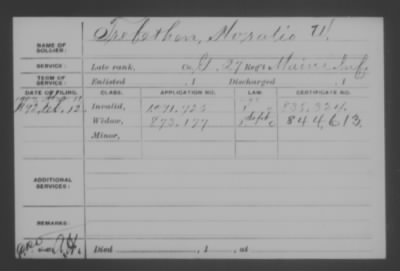 NAME OF SOLDIER: Trefethen, Horatio W.
SERVICE: Late rank, Co. G. 27 Reg't Maine Inf.
TERM OF SERVICE: Enlisted , 1 Discharged , 1
DATE OF FILING. CLASS. APPLICATION NO. LAW. CERTIFICATE NO.
Invalid, 1091.725 835.324
Widow, 873.177 844,613.
Minor,
ADDITIONAL SERVICES:
REMARKS:
Died , 1 , at